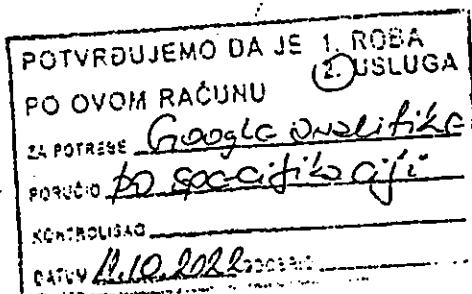 POTVRĐUJEMO DA JE 1. ROBA
2. USLUGA
PO OVOM RAČUNU
ZA POTREBE Google analitike
PORUČIO po specifikaciji
KONTROLISAO
DATUM 11.10.2022 ODOBRIO